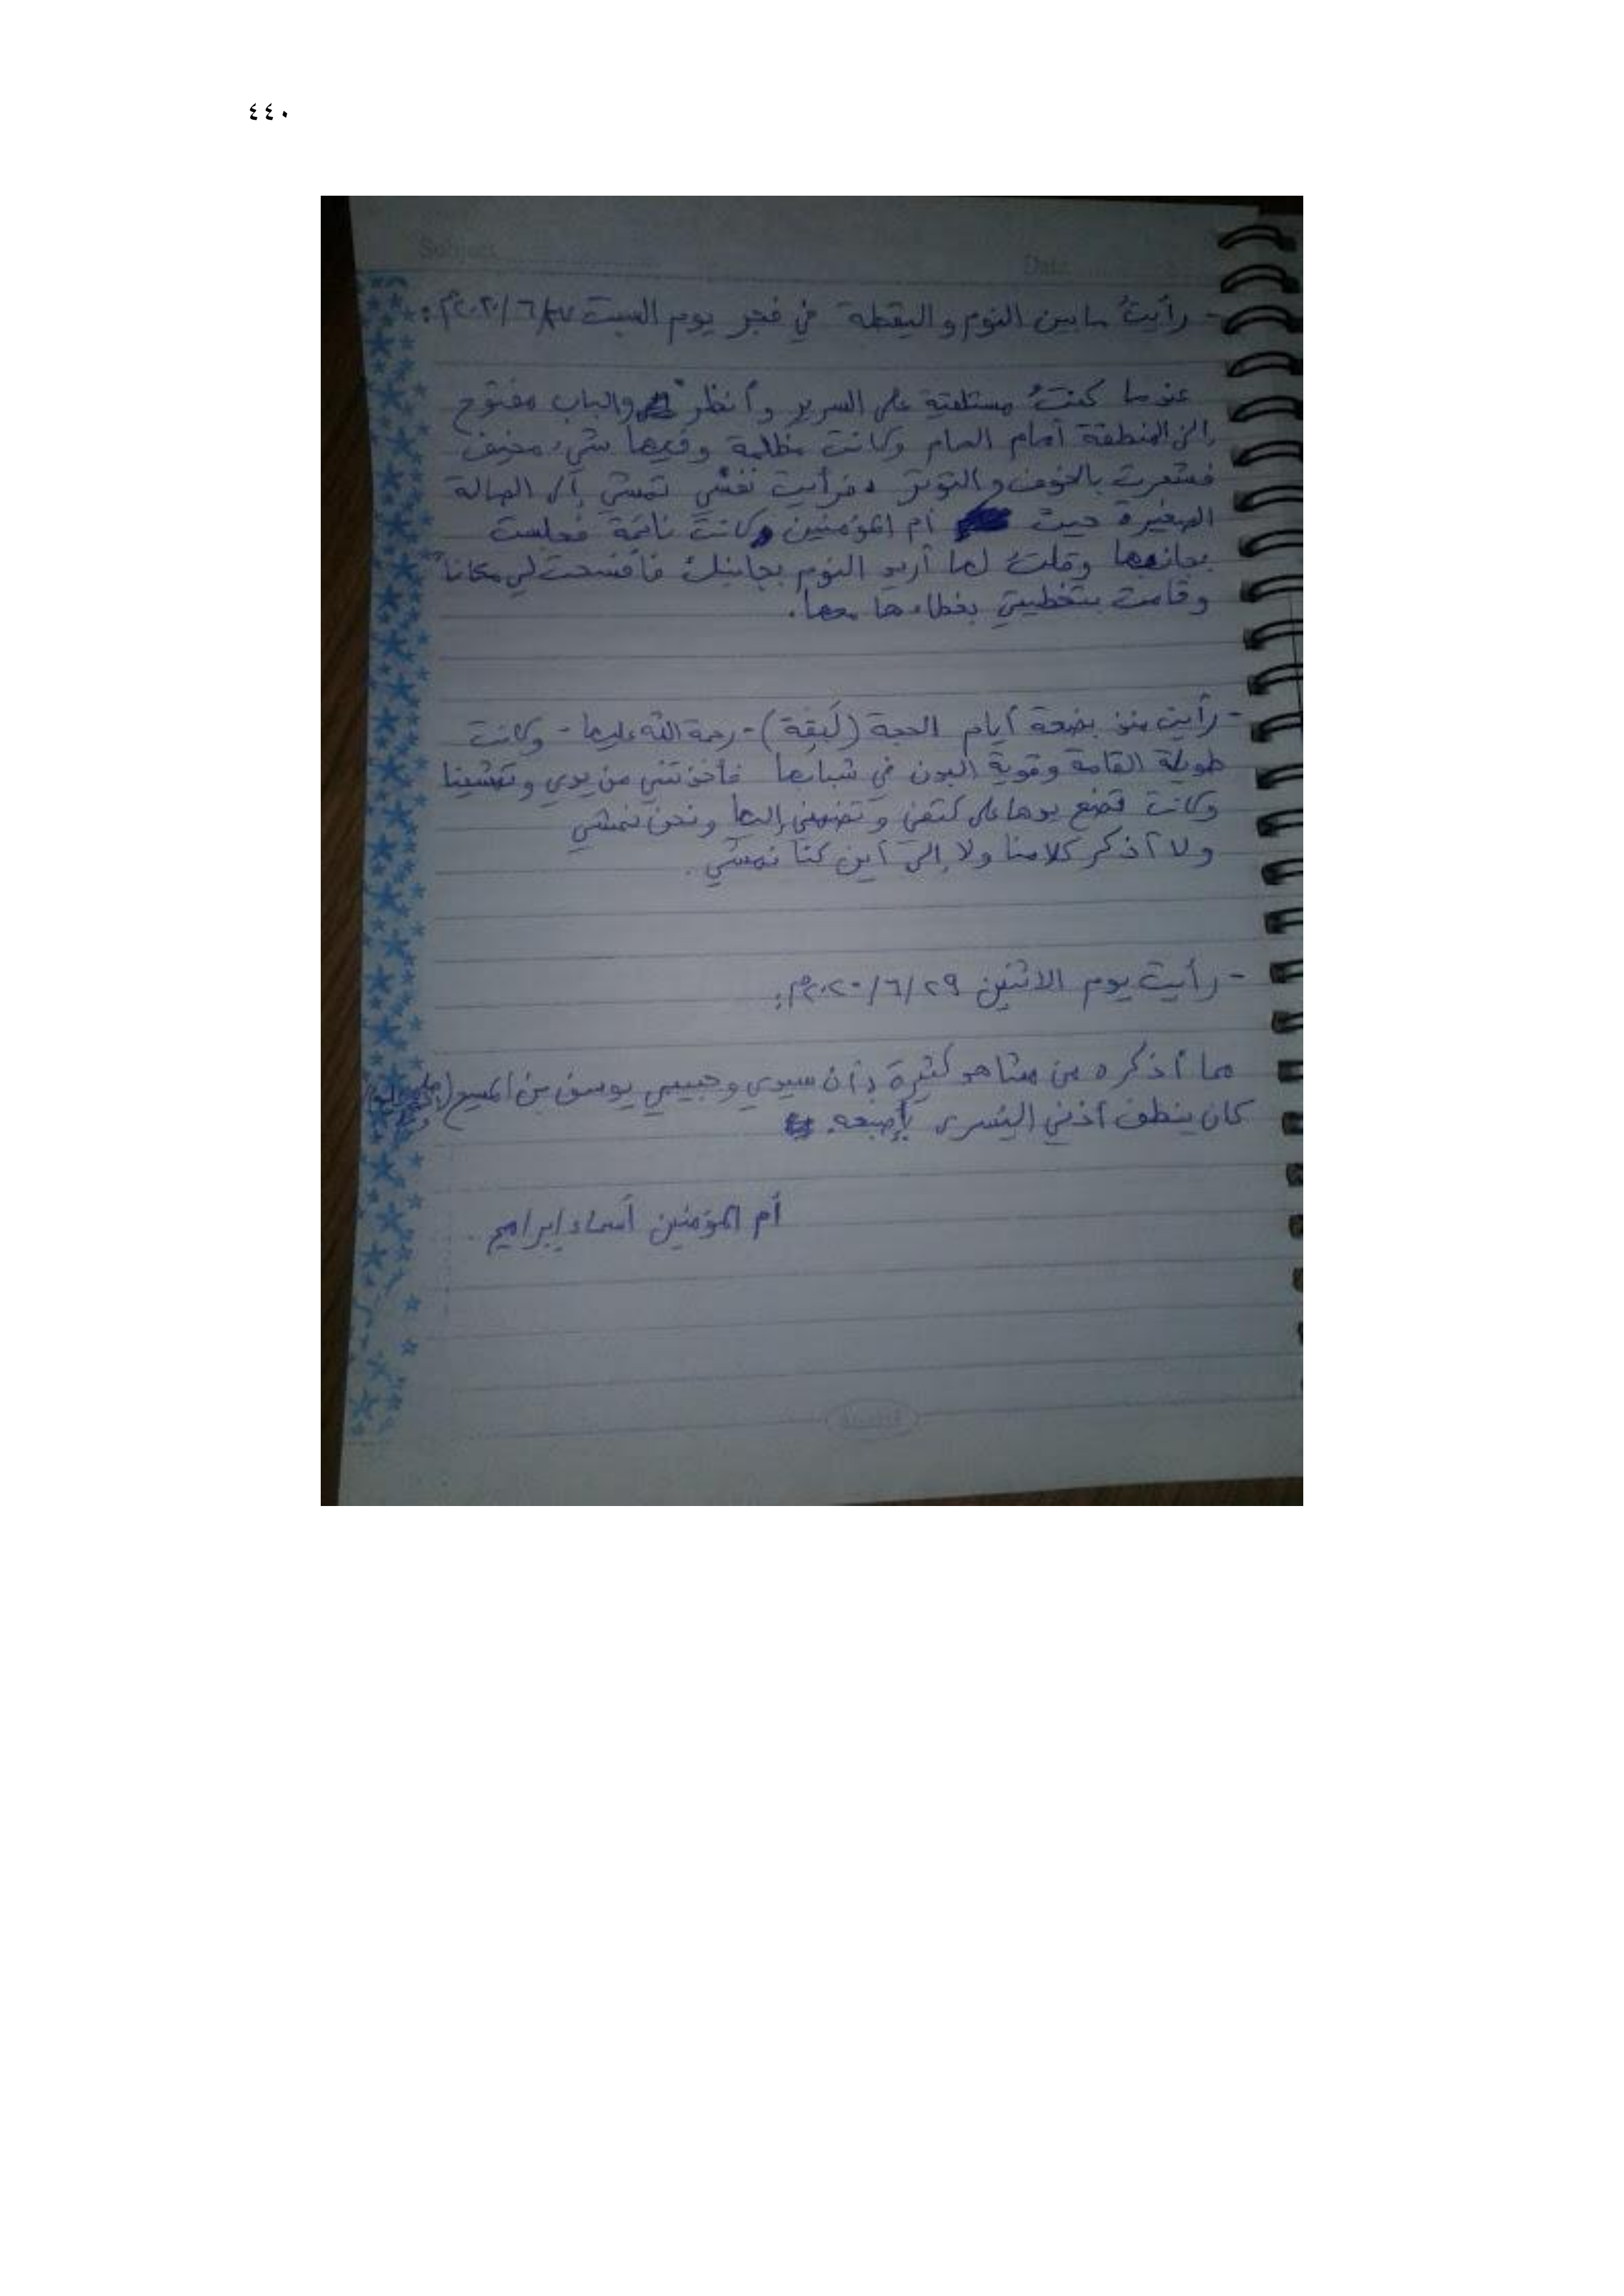 ٤٤٠
Subject
Date
- رأيتُ ما بين النوم واليقظة في فجر يوم السبت ٢٠٢٠/٦/٢٧م:
عندما كنتُ مستلقية على السرير وأنظر والباب مفتوح
إلى المنطقة أمام الحمام وكانت مظلمة وفيها شيء مخيف
فشعرت بالخوف والتوتر، فرأيت نفسي تمشي إلى الصالة
الصغيرة حيث أم المؤمنين وكانت نائمة فجلست
بجانبها وقلتُ لها أريد النوم بجانبك فأفسحت لي مكاناً
وقامت بتغطيتي بغطاءها معها.
- رأيت منذ بضعة أيام الحجة (لَبِقة) - رحمة الله عليها - وكانت
طويلة القامة وقوية البدن في شبابها فأخذتني من يدي وتمشينا
وكانت تضع يدها على كتفي وتضمني إليها ونحن نمشي
ولا أذكر كلامنا ولا إلى أين كنا نمشي.
- رأيت يوم الاثنين ٢٠٢٠/٦/٢٩م:
مما أذكره من مشاهد كثيرة بأن سيدي وحبيبي يوسف بن المسيح
كان ينظف أذني اليسرى بإصبعه.
أم المؤمنين أسماء إبراهيم.